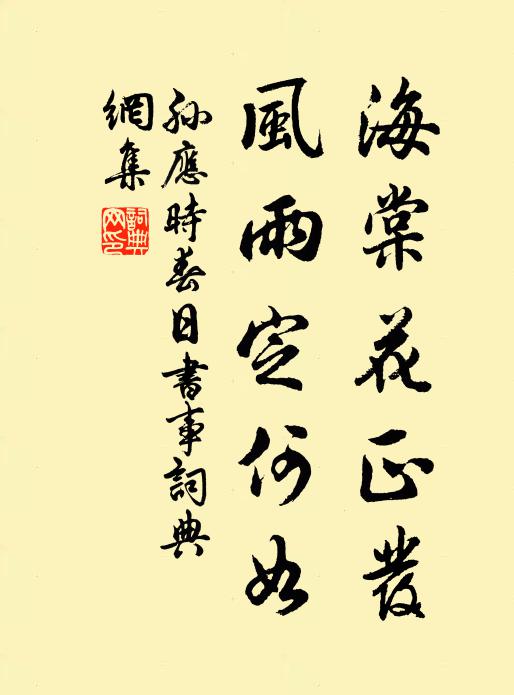 海棠花正發
風雨定何如
孫應時春日書事詞典
網集
詞典
网印